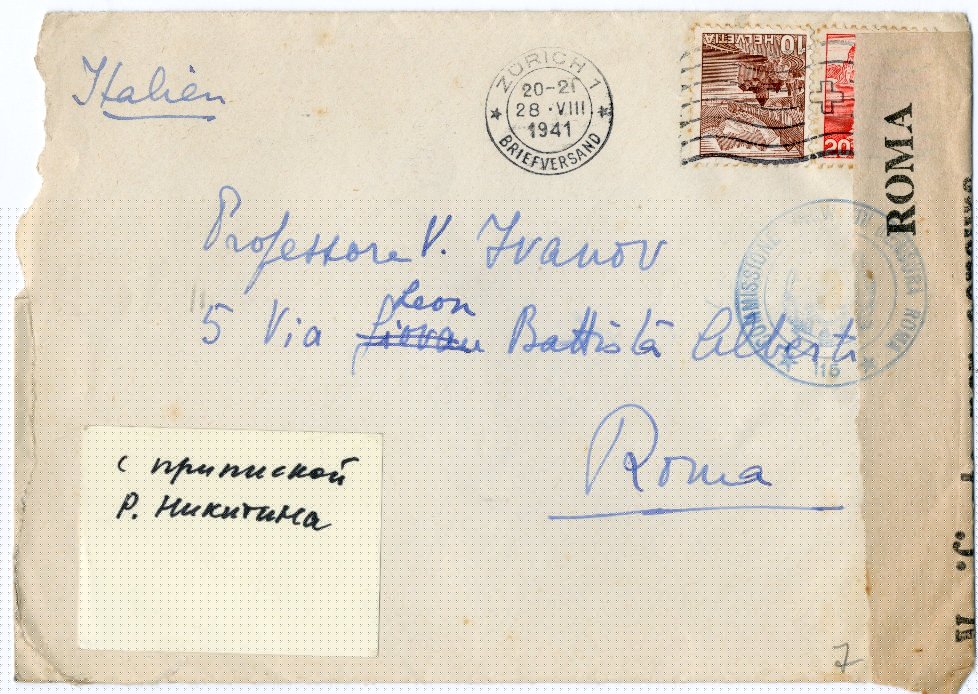 Italien
ZÜRICH 1
20-21
28·VIII
1941
BRIEFVERSAND
10 HELVETIA
20
ROMA
Professore V. Ivanov
Leon
5 Via Giovan Battista Alberti
COMMISSIONE CENSURA ROMA
115
Roma
с припиской
Р. Никитина
7